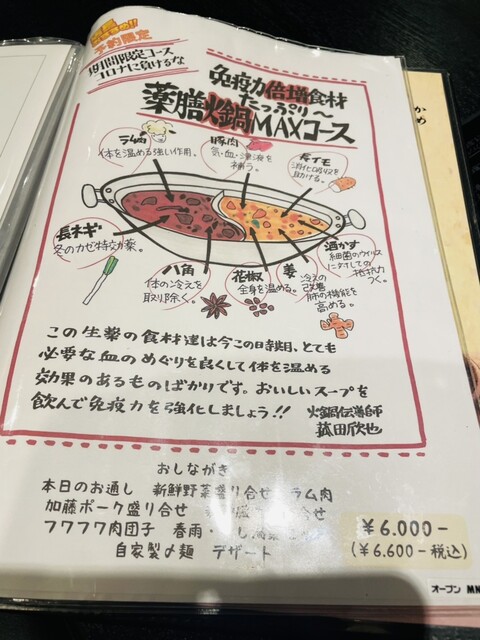 予約限定
期間限定コース
コロナに負けるな
免疫力倍増食材
たっぷり〜
薬膳火鍋MAXコース
ラム肉
体を温める強い作用。
豚肉
気・血・津液を
補う。
長イモ
消化吸収を
助ける。
長ネギ
冬のカゼ特効薬。
八角
体の冷えを
取り除く。
花椒
全身を温める。
姜
冷えの
改善
肺の機能を
高める。
酒かす
細菌やウイルス
に対しての
抵抗力
つく。
この生薬の食材達は今この時期、とても
必要な血のめぐりを良くして体を温める
効果のあるものばかりです。おいしいスープを
飲んで免疫力を強化しましょう!!
火鍋伝導師
菰田欣也
おしながき
本日のお通し 新鮮野菜盛り合せ ラム肉
加藤ポーク盛り合せ 合せ
フワフワ肉団子 春雨・
自家製〆麺 デザート
¥6.000-
(¥6.600-税込)
オープン MN
かめ